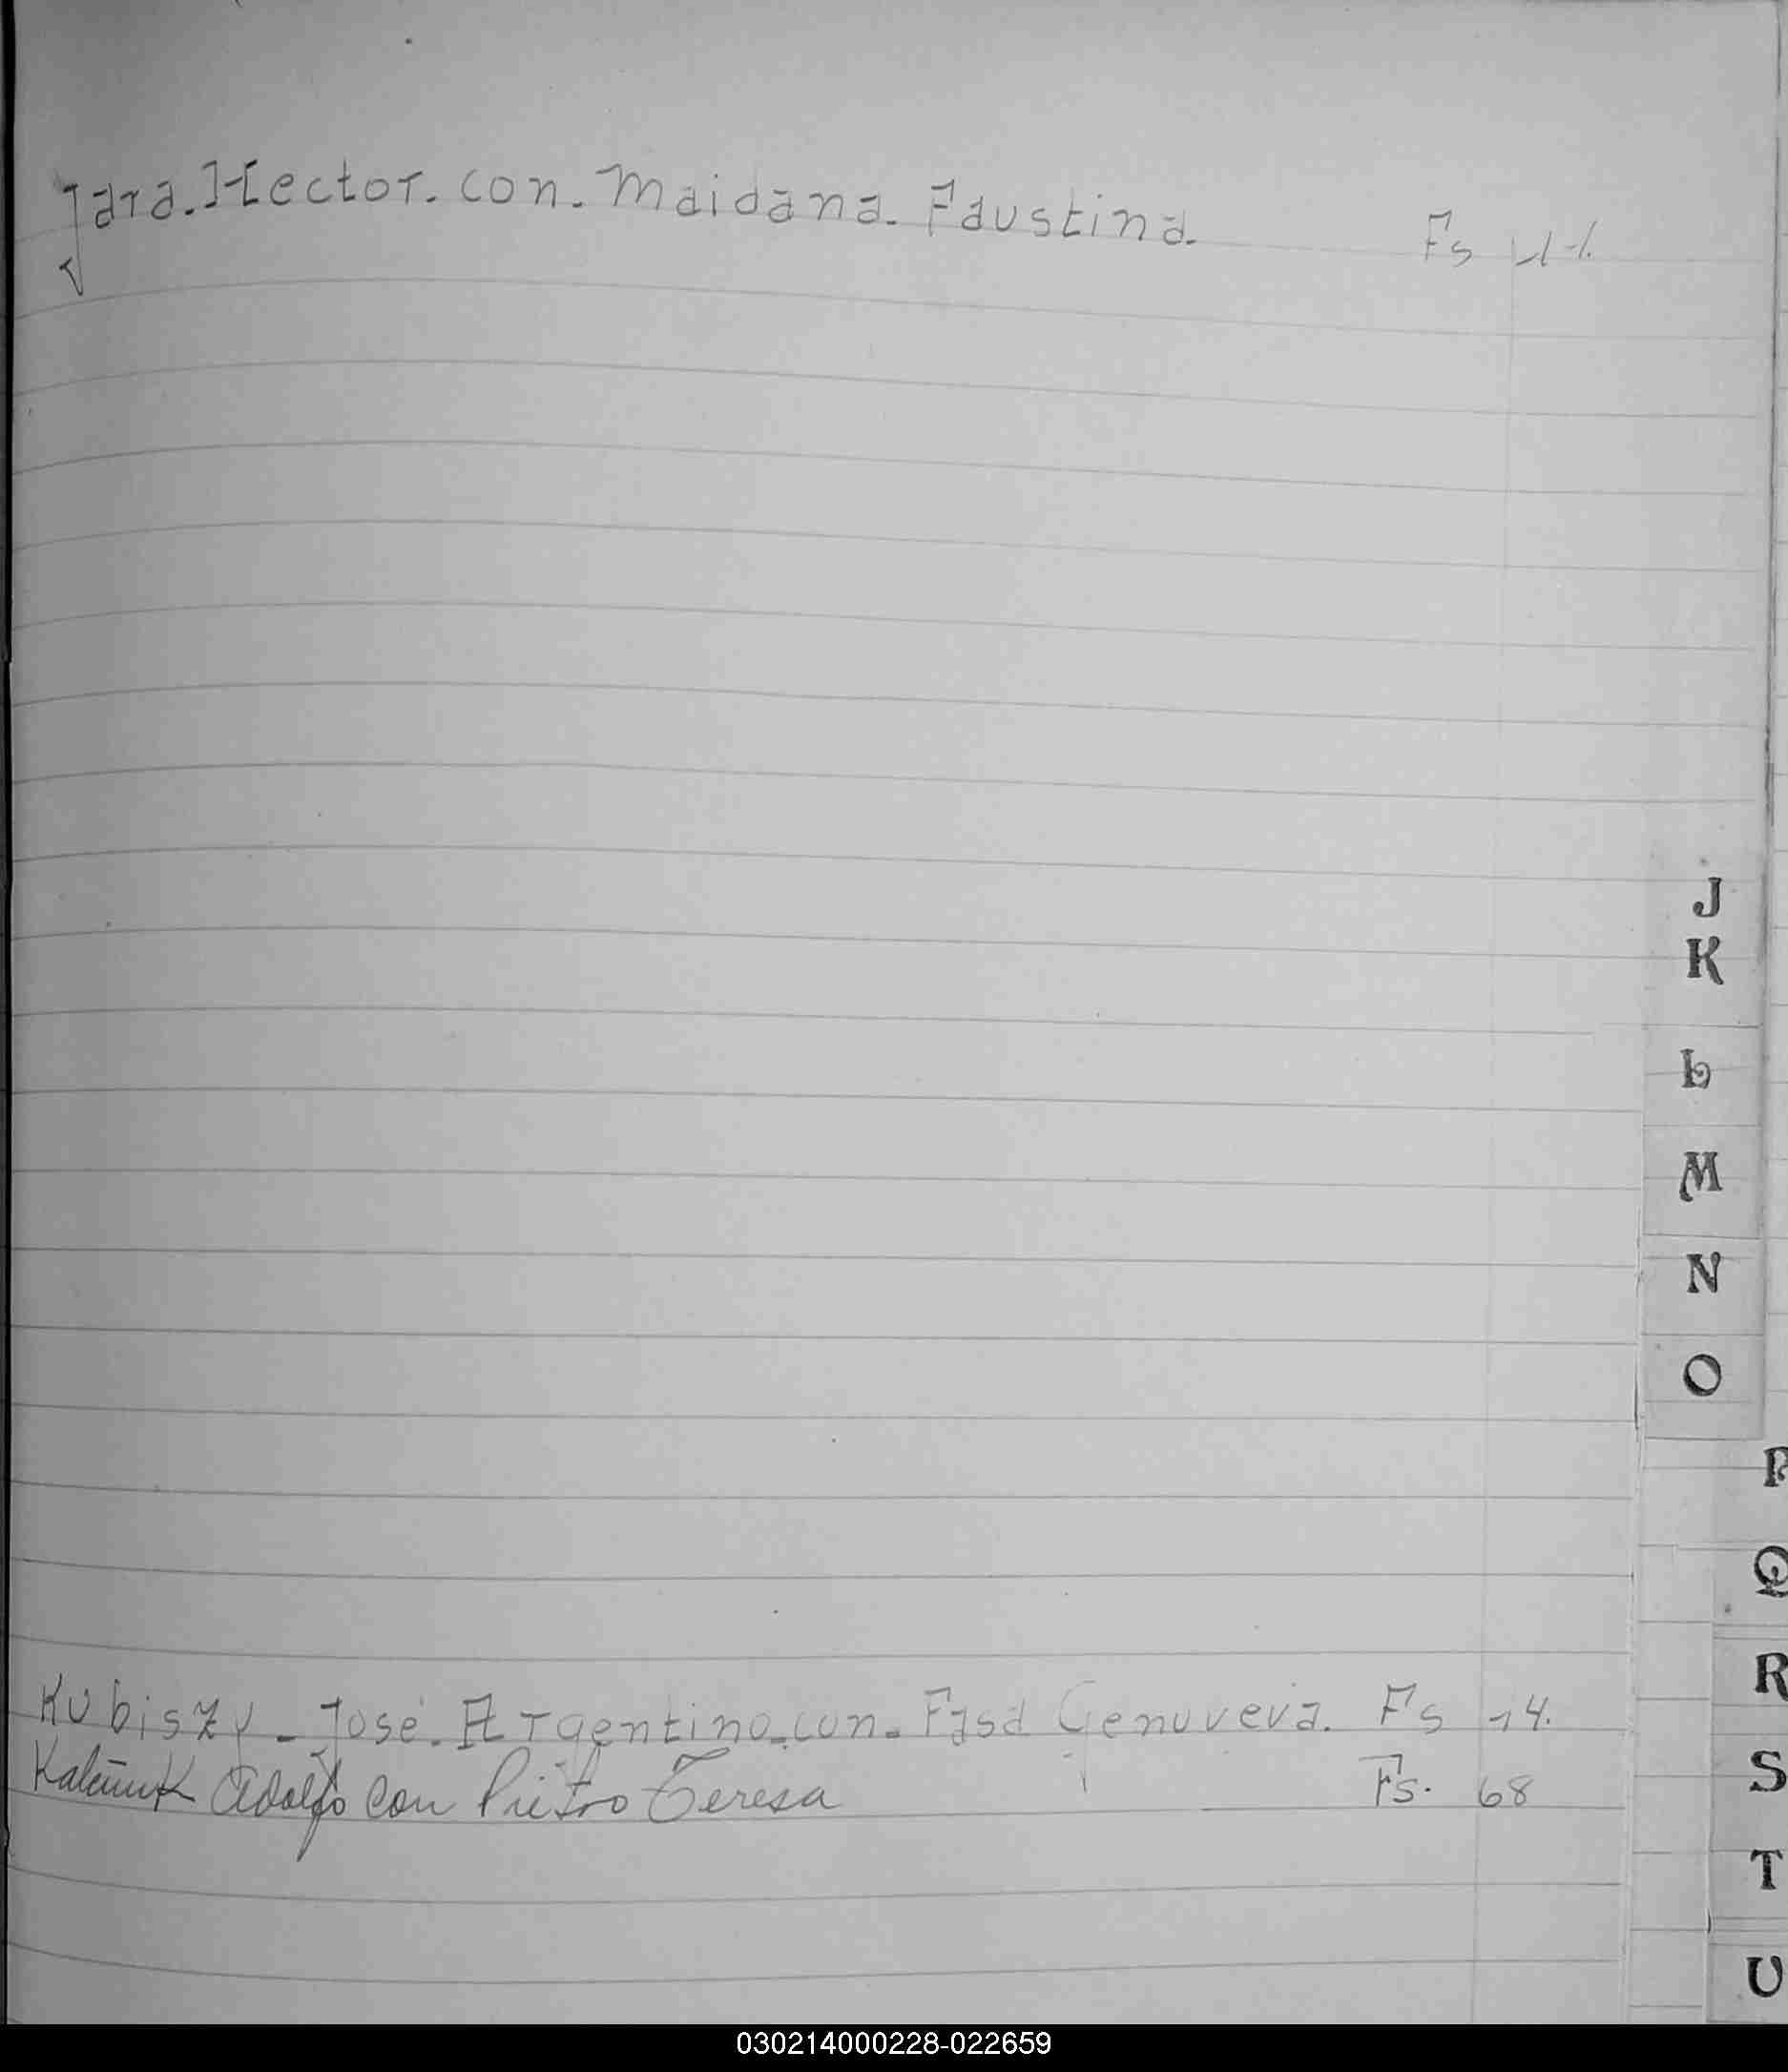 Jara. Hector. con. Maidana. Faustina. Fs
J
K
L
M
N
O
P
Q
R
S
T
U
Kubiszy - José. Argentino. con. Fasa Genoveva. Fs 14.
Adolfo con Teresa Fs. 68
030214000228-022659